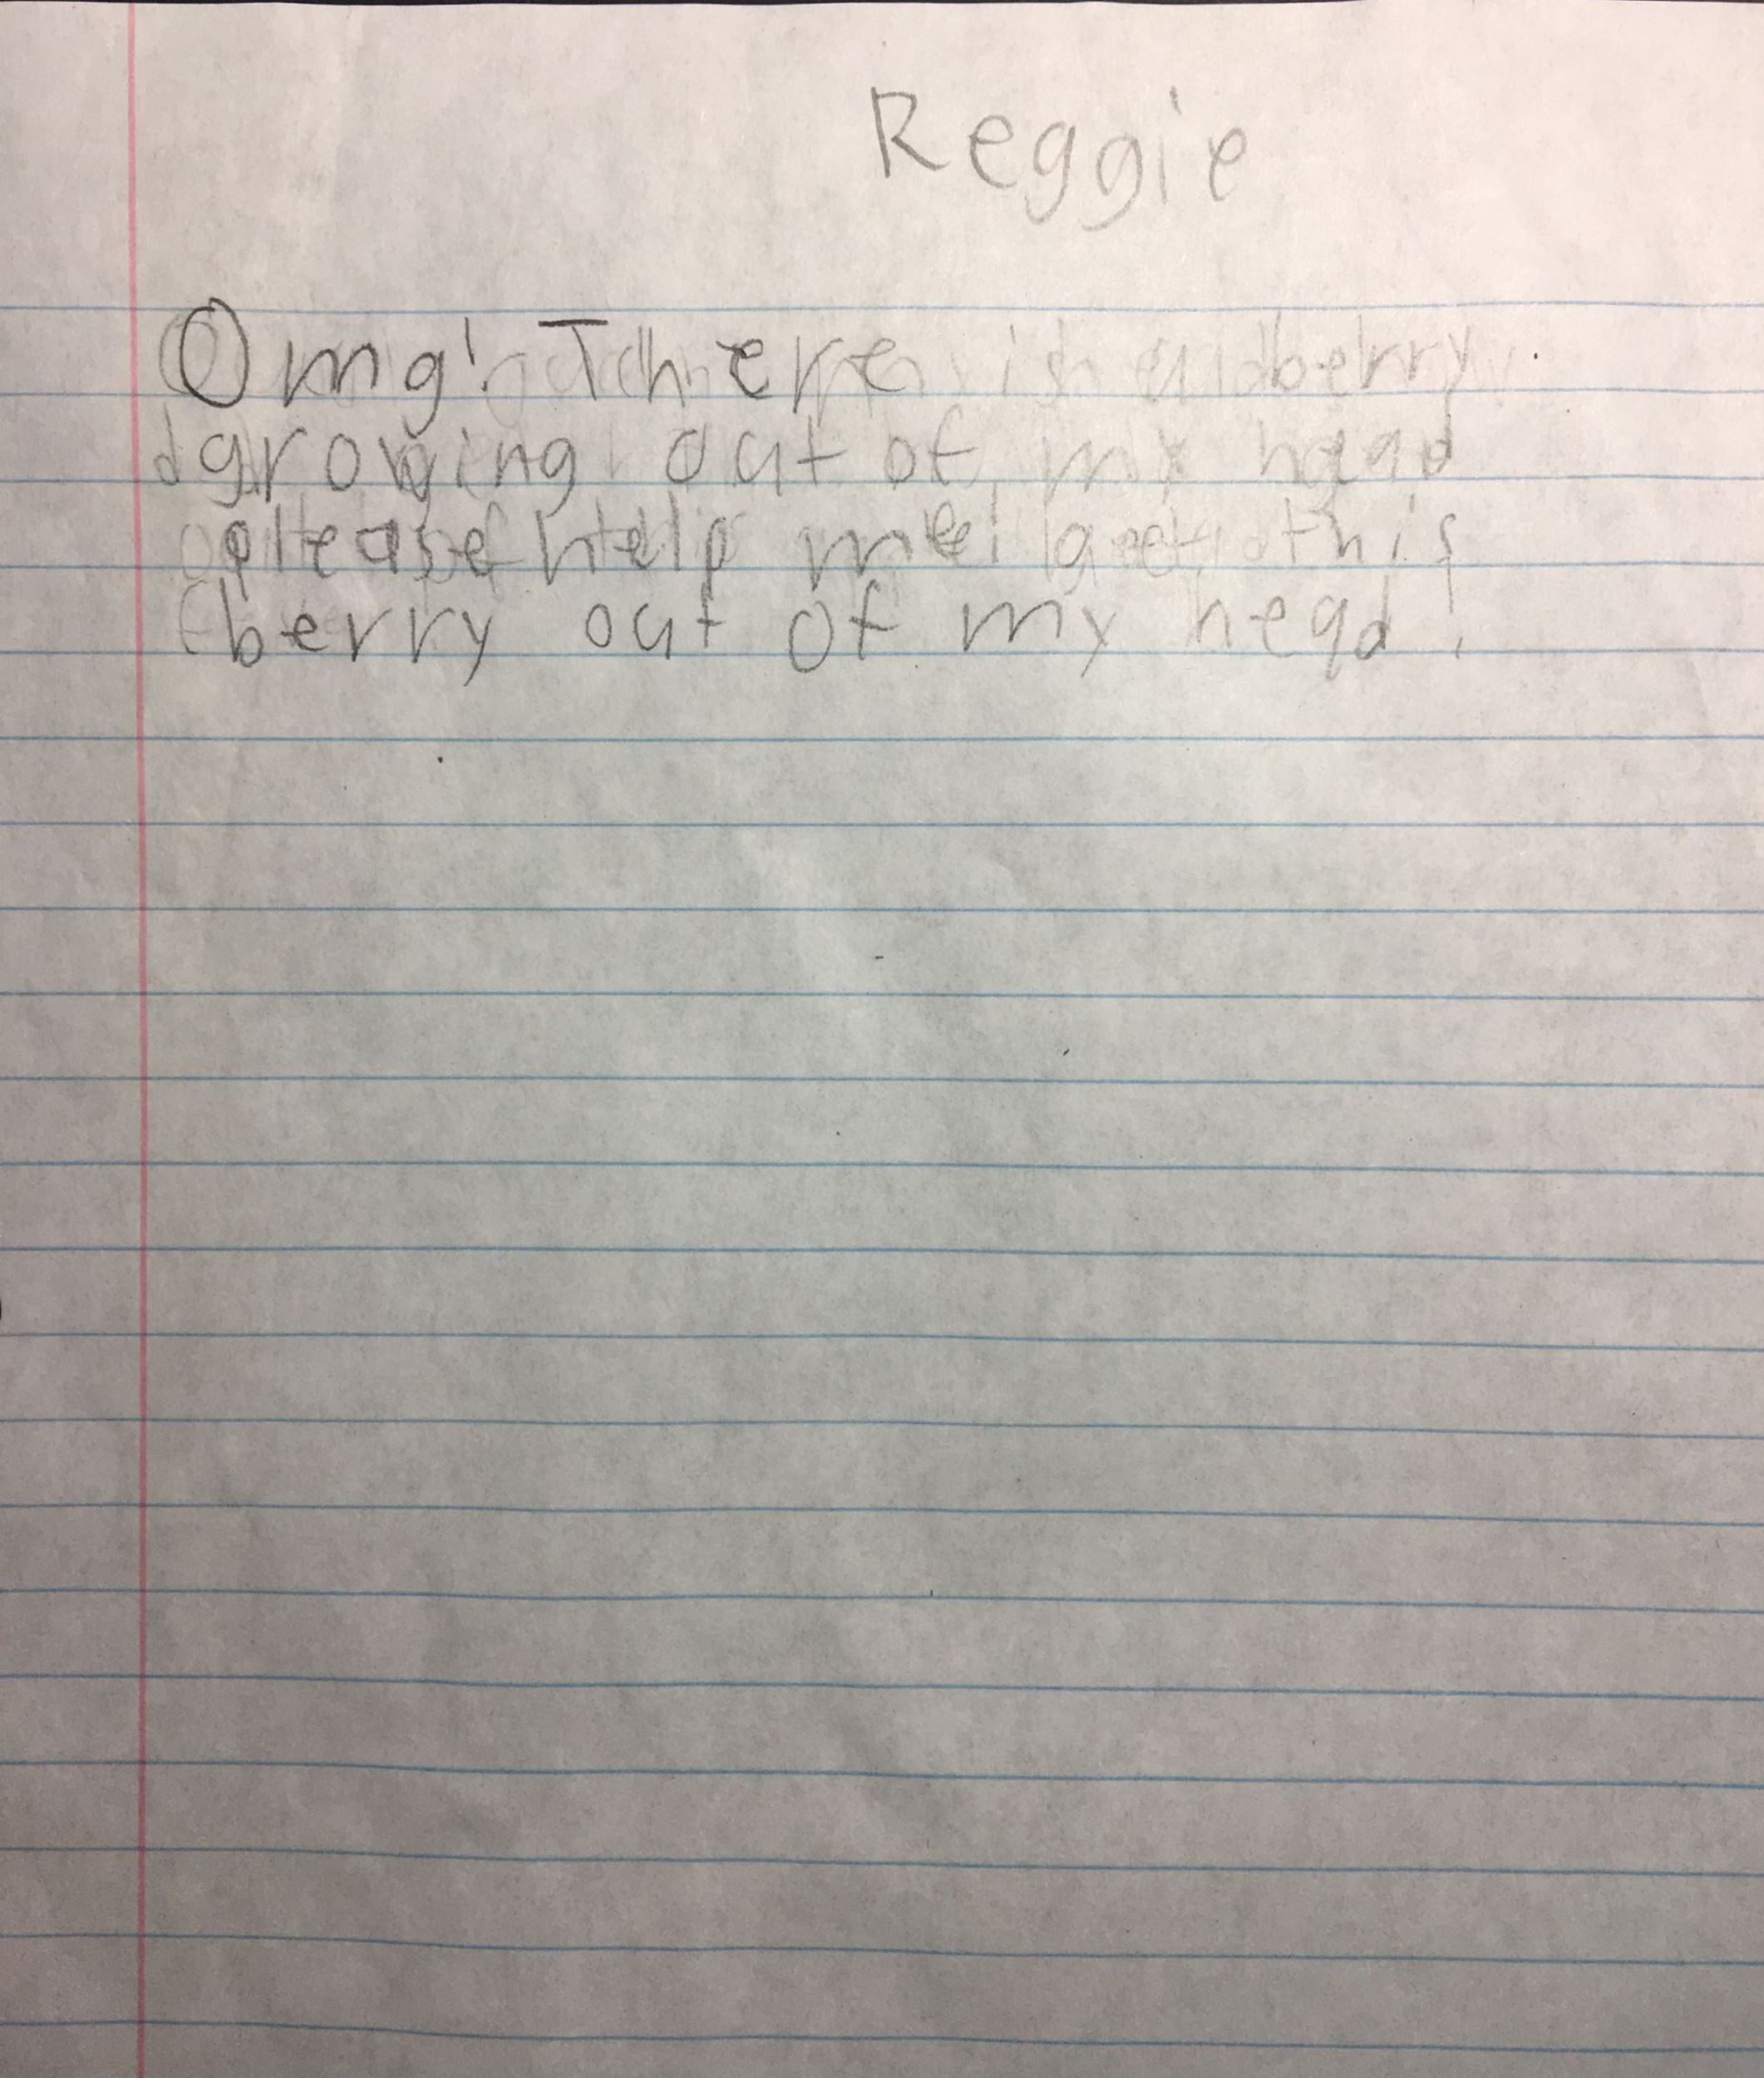 Reggie
Omg! There is a berry
growing out of my head
please help me get this
berry out of my head!